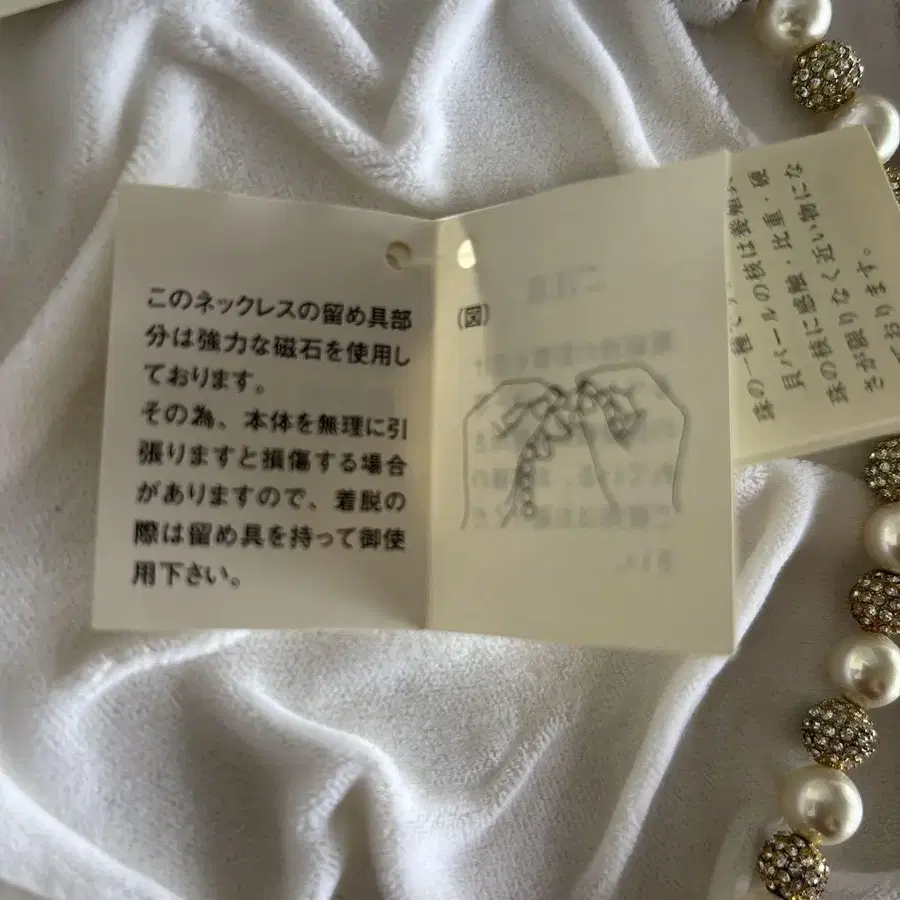 このネックレスの留め具部
分は強力な磁石を使用し
ております。
その為、本体を無理に引
張りますと損傷する場合
がありますので、着脱の
際は留め具を持って御使
用下さい。
(図)
珠の一種で
貝パールの核は養殖真
珠の核に感触・比重・硬
さが限りなく近い物にな
っております。